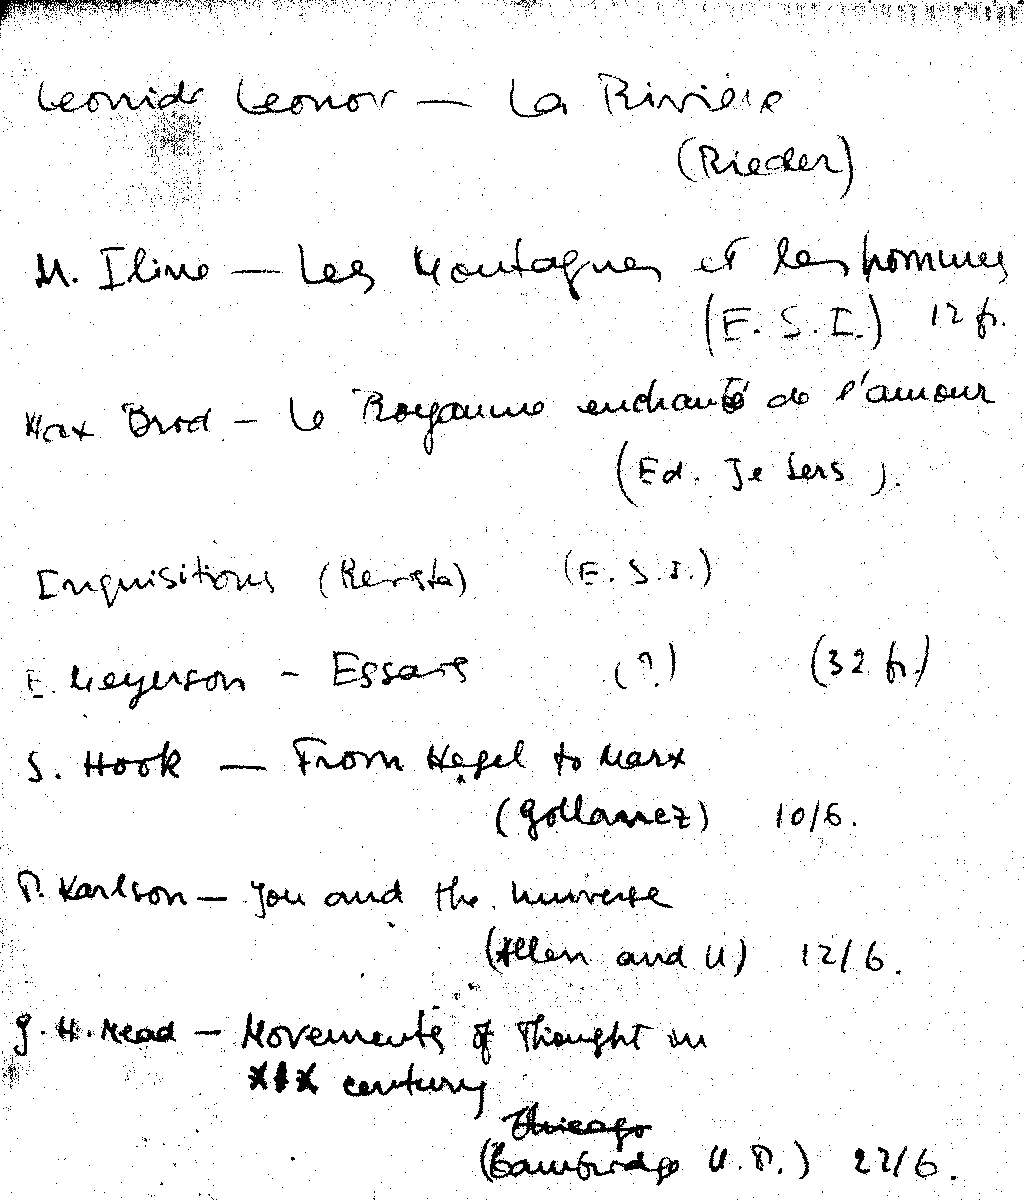 Leonide Leonov — La Rivière
(Rieder)
M. Iline — Les Montagnes et les hommes
(E. S. I.) 12 fr.
Max Brod — Le Royaume enchanté de l'amour
(Ed. Je Sers).
Inquisitions (Revista) (E. S. I.)
E. Meyerson - Essais (?) (32 fr.)
S. Hook — From Hegel to Marx
(Gollancz) 10/6.
P. Karlson — You and the Universe
(Allen and U) 12/6.
G. H. Mead — Movements of Thought in
XIX century
Chicago
(Cambridge U. P.) 22/6.